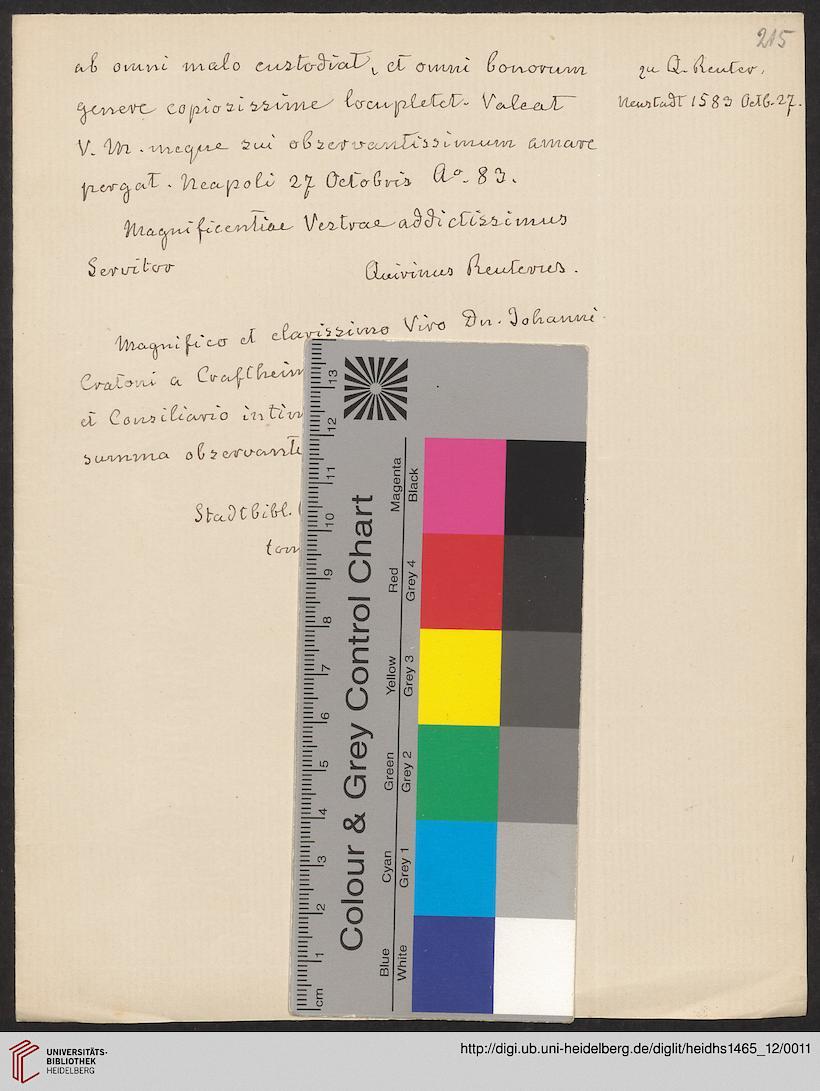 215
ab omni malo custodiat, et omni bonorum
genere copiosissime locupletet. Valeat
V. M. meque sui observantissimum amare
pergat. Neapoli 27 Octobris Aº. 83.
Magnificentiae Vestrae addictissimus
Servitor Quirinus Reuterus.
zu Q. Reuter,
Neustadt 1583 Octb. 27.
Magnifico et clarissimo Viro Dn. Johanni
Cratoni a Craftheim
et Consiliario intim
summa observant
Stadtbibl.
tom
Colour & Grey Control Chart
cm 1 2 3 4 5 6 7 8 9 10 11 12 13
Blue Cyan Green Yellow Red Magenta
White Grey 1 Grey 2 Grey 3 Grey 4 Black
UNIVERSITÄTS-
BIBLIOTHEK
HEIDELBERG
http://digi.ub.uni-heidelberg.de/diglit/heidhs1465_12/0011